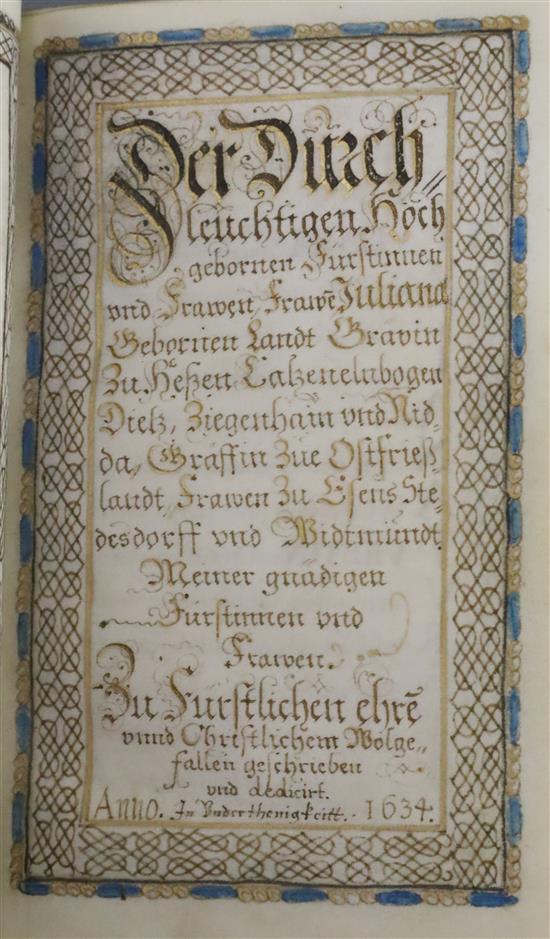 Der Durch⸗
leuchtigen Hoch
gebornen Fürstinnen
vnd Frawen, Frawē Juliana
Gebornen Landt Gravin
Zu Heßen Catzenelnbogen
Dietz, Ziegenhain vnd Nid⸗
da, Gräffin Zue Ostfrieß⸗
landt, Frawen Zu Esens Ste⸗
desdorff vnd Widtmundt.
Meiner gnädigen
Fürstinnen vnd
Frawen.
Zu Fürstlichen ehrē
vnnd Christlichem Wolge⸗
fallen geschrieben
vnd dedicirt.
Anno. In Vnderthenigkeitt. 1634.